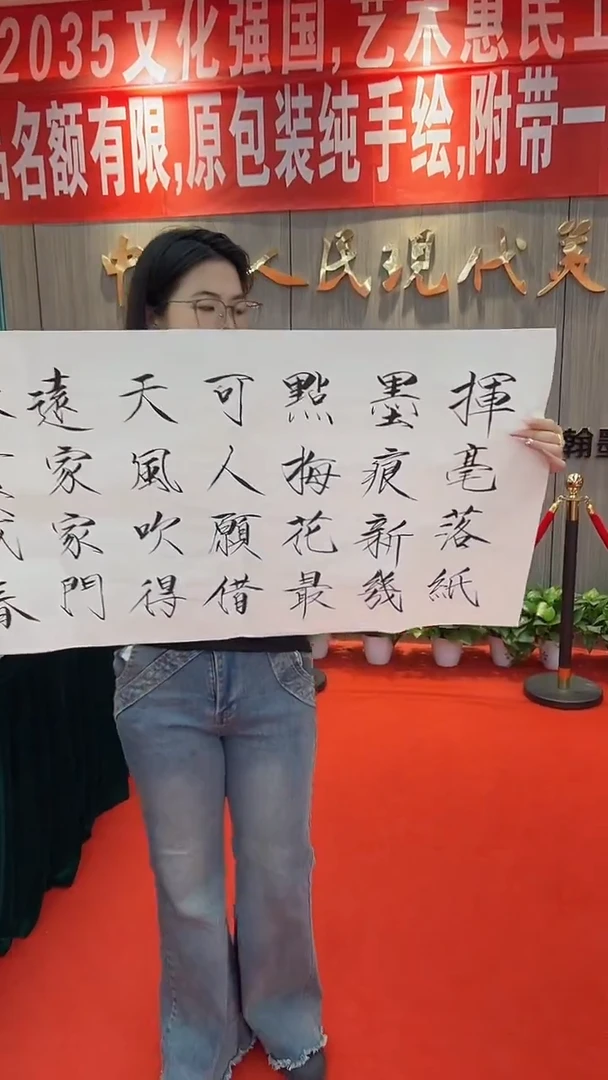 2035文化强国,艺术惠民工
品名额有限,原包装纯手绘,附带一
中 人民现代美
翰墨
揮毫落紙
墨痕新幾
點梅花最
可人願借
天風吹得
遠家家門
春